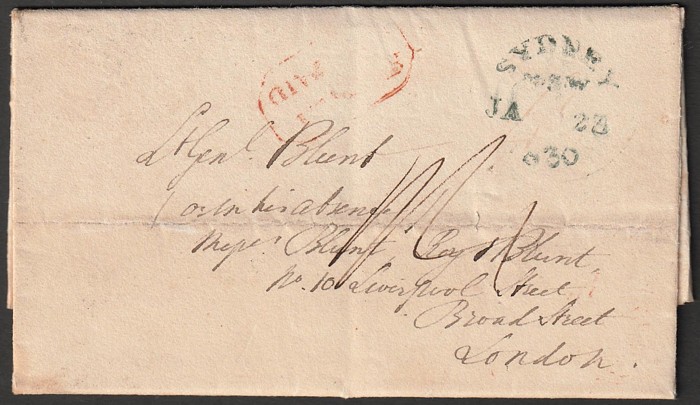 PAID
SYDNEY
NSW
JA 28
830
Lt Genl. Blunt
or in his absence
Messrs. Blunt, Roy & Blunt,
No. 10 Liverpool Street
Broad Street
London.